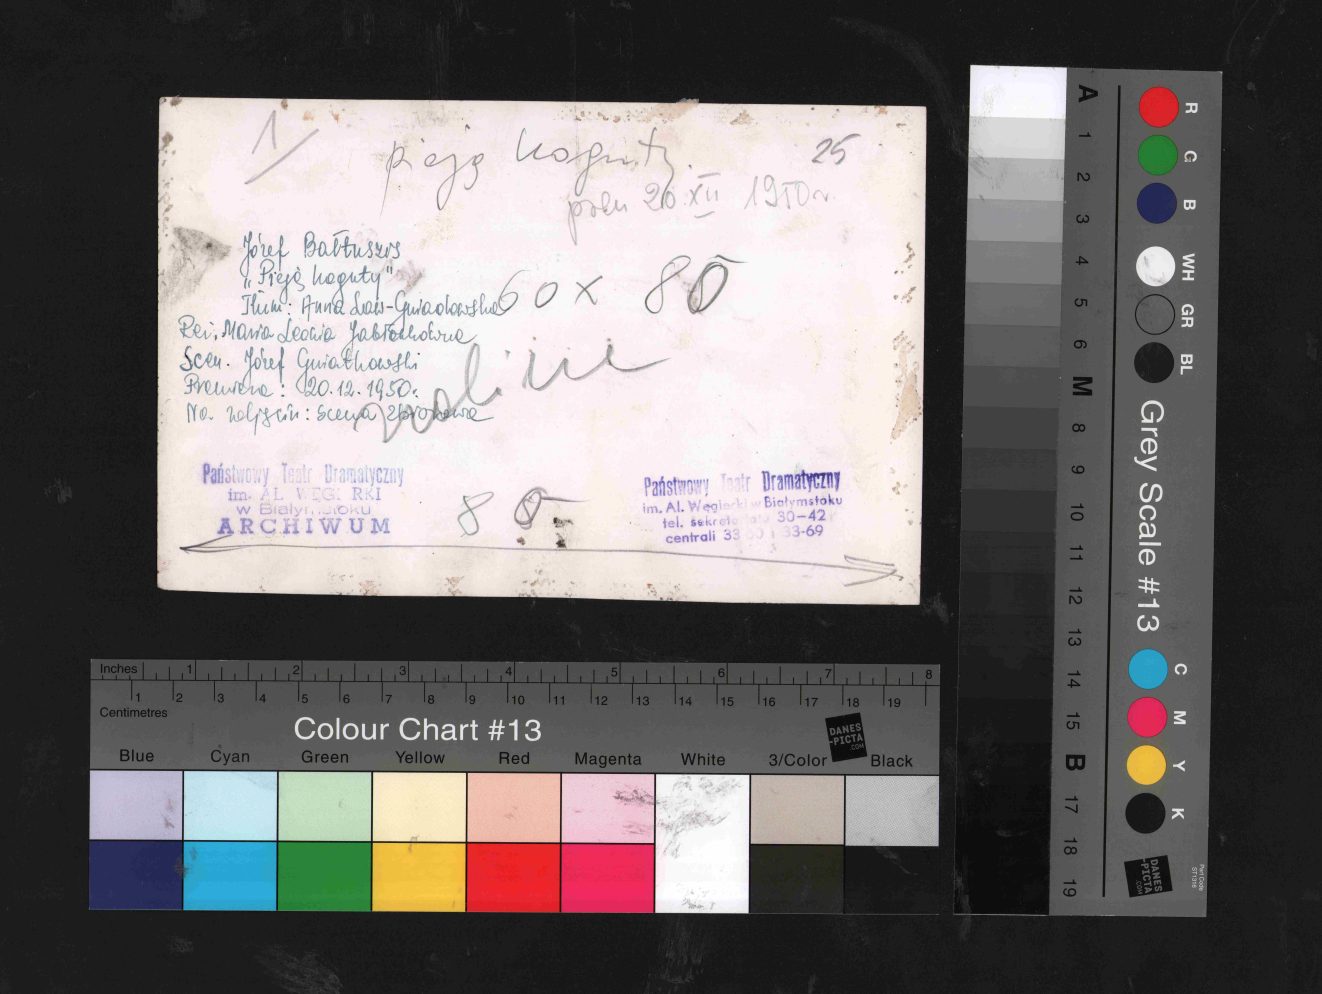 1
pieją koguty.
25
prem 20 XII 1950 r.
Józef Bałtuszys
"Pieją koguty"
Tłum: Anna Law-Gniadowska
Reż. Maria Leonia Jabłonkówna
Scen. Józef Gniatkowski
Premiera: 20.12.1950r.
Na zdjęciu: Scena zbiorowa
60 x 80
Państwowy Teatr Dramatyczny
im. AL WĘGIERKI
w Białymstoku
ARCHIWUM
80
Państwowy Teatr Dramatyczny
im. Al. Węgierki w Białymstoku
tel. sekretariatu 30-42
centrali 33 60 i 33-69
Inches 1 2 3 4 5 6 7 8
1 2 3 4 5 6 7 8 9 10 11 12 13 14 15 16 17 18 19
Centimetres
Colour Chart #13
DANES
-PICTA
.COM
Blue Cyan Green Yellow Red Magenta White 3/Color Black
A 1 2 3 4 5 6 M 8 9 10 11 12 13 14 15 B 17 18 19
R G B WH GR BL
Grey Scale #13
C M Y K
DANES
-PICTA
.COM
Part Code
ST1316